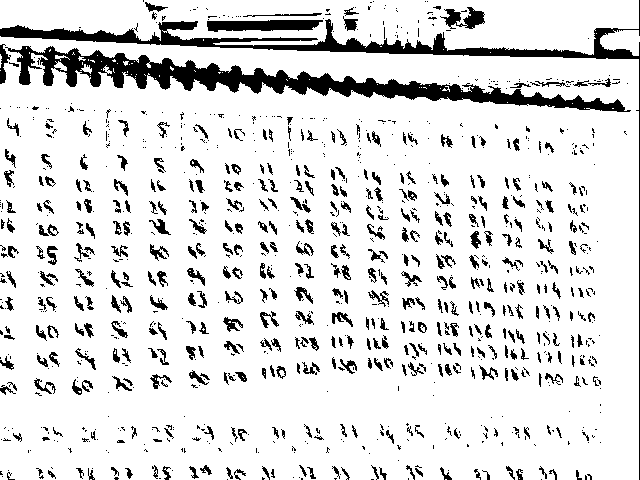 4 5 6 7 8 9 10 11 12 13 14 15 16 17 18 19 20
4 5 6 7 8 9 10 11 12 13 14 15 16 17 18 19 20
8 10 12 14 16 18 20 22 24 26 28 30 32 34 36 38 40
12 15 18 21 24 27 30 33 36 39 42 45 48 51 54 57 60
20 24 28 32 36 40 44 48 52 56 60 64 68 72 76 80
20 25 30 35 40 45 50 55 60 65 70 75 80 85 90 95 100
24 30 36 42 48 54 60 66 72 78 84 90 96 102 108 114 120
28 35 42 49 56 63 70 77 84 91 98 105 112 119 126 133 140
32 40 48 56 64 72 80 88 96 104 112 120 128 136 144 152 160
36 45 54 63 72 81 90 99 108 117 126 135 144 153 162 171 180
40 50 60 70 80 90 100 110 120 130 140 150 160 170 180 190 200
24 25 26 27 28 29 30 31 32 33 34 35 36 37 38 39 40
25 26 27 28 29 30 31 32 33 34 35 36 37 38 39 40